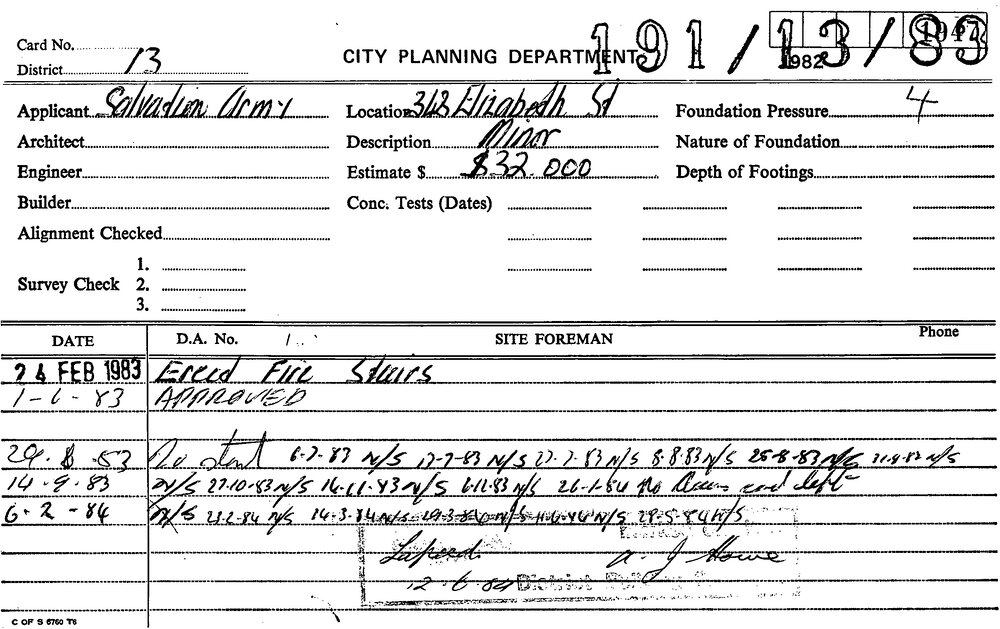 Card No.
District 13
CITY PLANNING DEPARTMENT
191/13/83
1982
Applicant Salvation Army Location 343 Elizabeth St Foundation Pressure 4
Architect Description Minor Nature of Foundation
Engineer Estimate $ $32.000 Depth of Footings
Builder Conc. Tests (Dates)
Alignment Checked
1.
Survey Check 2.
3.
DATE D.A. No. SITE FOREMAN Phone
24 FEB 1983 Erect Fire Stairs
1-6-83 APPROVED
No start 6-7-83 N/S N/S N/S 8-8-83 N/S 25-8-83 N/S N/S
14-9-83 N/S 27-10-83 N/S 14-11-83 N/S 6-12-83 N/S 26-1-84 No
6-2-84 N/S 23-2-84 N/S 14-3-84 N/S N/S N/S 28-5-84 N/S
Lapsed. A J Howe
12-6-84 District
C OF S 6760 T6